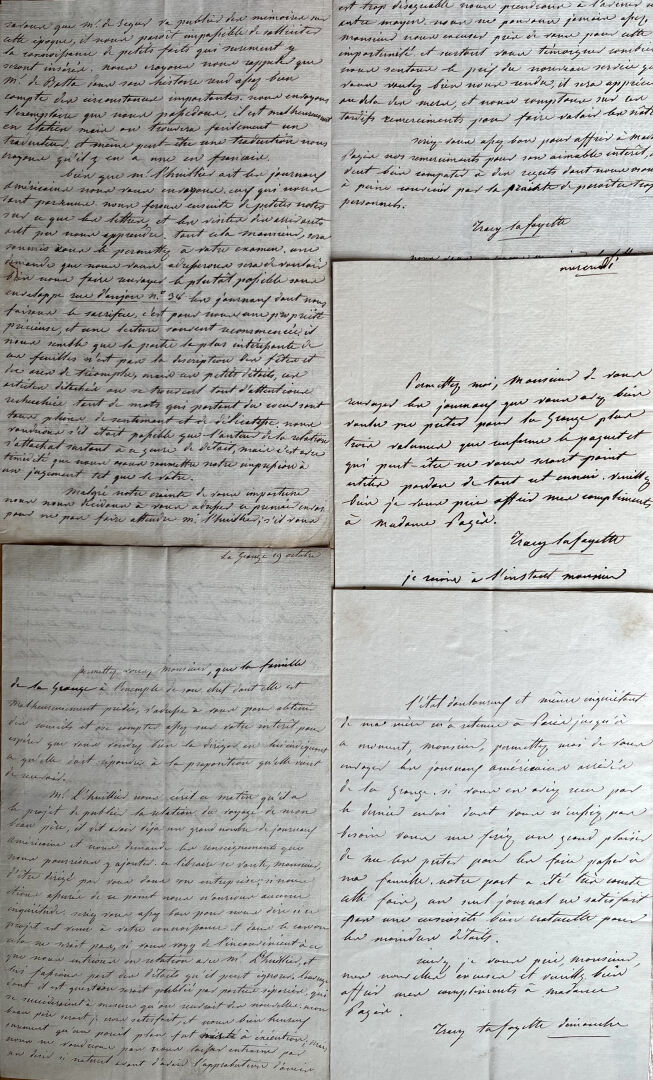 que Mr. de Segur va publier des mémoires sur
cette époque, il nous paroit impossible de rattacher
la connoissance de petits faits qui surement y
seront inserés. nous croyons nous rappeler que
Mr. de Botta dans son histoire rend assez bien
compte des circonstances importantes. nous envoyons
l'exemplaire que nous possedons, il est malheureusement
en italien mais on trouvera facilement un
traducteur, et meme peut être une traduction nous
croyons qu'il y en a une en francais.
bien que Mr. l'huillier ait les journaux
américains nous vous envoyons ceux qui nous
sont parvenus. nous ferons ensuite de petites notes
sur ce que les lettres, et les
ont pu nous apprendre. tout cela monsieur, sera
soumis vous le permettez à votre examen, une
demande que nous vous adresserons sera de vouloir
bien nous faire renvoyer le plutôt possible sous
enveloppe rue d'anjou n.° 34 les journaux dont nous
faisons le sacrifice. c'est pour nous une propriété
précieuse, et une lecture souvent recommencée; il
nous semble que la partie la plus intéressante de
ces feuilles n'est pas la description des fêtes et
des arcs de triomphe, mais ces petits détails, ces
articles détachés où se trouvent tant d'attentions
recherchées tant de mots qui partent du coeur sont
tous pleins de sentiment et de délicatesse, nous
voudrions s'il était possible que l'auteur de la relation
s'attachat surtout à ce genre de détail, mais c'est avec
timidité que nous vous soumettons notre impression à
un jugement tel que le votre.
Malgré notre crainte de vous importuner
nous nous décidons à vous adresser ce premier envoi
pour ne pas faire attendre Mr. l'huillier; s'il vous
est trop désagréable nous prendrons à l'avenir un
autre moyen. nous ne pouvons jamais assez,
monsieur nous excuser près de vous pour cette
importunité et surtout vous témoigner combien
nous sentons le prix du nouveau service que
vous voulez bien nous rendre, il sera apprécié
au delà des mers, et nous comptons sur ces
tardifs remerciments pour faire valoir les notres
serez vous assez bon pour offrir à Madame
Pagès nos remerciments pour son aimable intérêt,
veut bien compatir à des regrets dont nous
à peine convenir par la crainte de paroitre trop
personnels.
Tracy lafayette
mercredi
Permettez moi, Monsieur de vous
renvoyer les journaux que vous avez bien
voulu me prêter pour la Grange plus
trois volumes que renferme le paquet et
qui peut être ne vous seront point
utiles pardon de tout cet ennui veuillez
bien je vous prie offrir mes compliments
à Madame Pagès.
Tracy lafayette
je reçois à l'instant monsieur
La Grange 19 octobre
permettez vous, Monsieur, que la famille
de la Grange à l'exemple de son chef dont elle est
malheureusement privée, s'adresse à vous pour obtenir
des conseils et ose compter assez sur votre intérêt pour
espérer que vous voudrez bien la diriger en
ce qu'elle doit répondre à la proposition qu'elle vient
de recevoir.
Mr. L'huillier nous écrit ce matin qu'il a
le projet de publier la relation du voyage de mon
beau père, il dit avoir déjà un grand nombre de journaux
américains et nous demande les renseignements que
nous pourrions y ajouter. ce libraire se vante, monsieur,
d'être dirigé par vous dans son entreprise; si nous
étions assurés de ce point nous n'aurions aucune
inquiétude. serez vous assez bon pour nous dire si ce
projet est venu à votre connoissance et dans le cas où
cela ne seroit pas, si vous voyez de l'inconvenient à ce
que nous entrions en relation avec Mr. L'huillier, et
lui fassions part des détails qu'il peut ignorer. l'ouvrage
dont il est question seroit publié par parties séparées, qui
se succederoient à mesure qu'on recevroit des nouvelles. mon
beau père seroit, je crois satisfait, et nous bien heureux
surement qu'un pareil plan fut mis à exécution, mais
nous ne voudrions pas nous laisser entrainer par
un désir si naturel avant d'avoir l'approbation d'un
L'état douloureux et même inquiétant
de ma mère m'a retenue à Paris jusqu'à
ce moment, monsieur, permettez moi de vous
envoyer les journaux américains arrivés
de la Grange, si vous en avez reçu par
le dernier envoi dont vous n'ussiez pas
besoin vous me feriez un grand plaisir
de me les prêter pour les faire passer à
ma famille. notre part a été très courte
cette fois, un seul journal ne satisfait
pas une curiosité bien naturelle pour
les moindres détails.
veuillez, je vous prie, monsieur,
mes nouvelles excuses et veuillez bien
offrir mes compliments à madame
Pagès.
Tracy lafayette dimanche